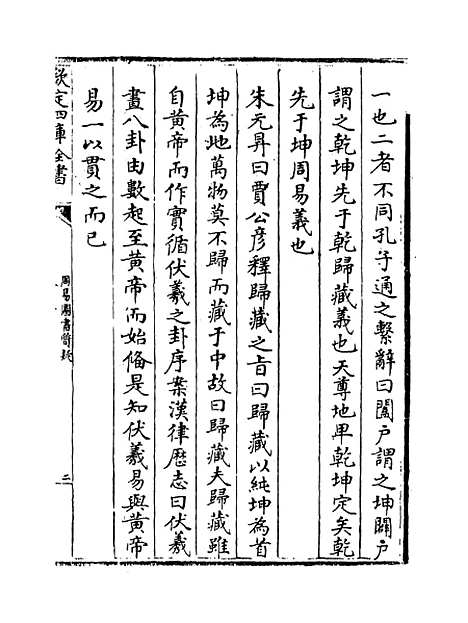 一也二者不同孔子通之繫辭曰闔戶謂之坤闢戶
謂之乾坤先于乾歸藏義也天尊地卑乾坤定矣乾
先于坤周易義也
朱元昇曰賈公彥釋歸藏之旨曰歸藏以純坤為首
坤為地萬物莫不歸而藏于中故曰歸藏夫歸藏雖
自黃帝而作實循伏羲之卦序案漢律歷志曰伏羲
畫八卦由數起至黃帝而始備是知伏羲易與黃帝
易一以貫之而已
欽定四庫全書
周易圖書質疑
二